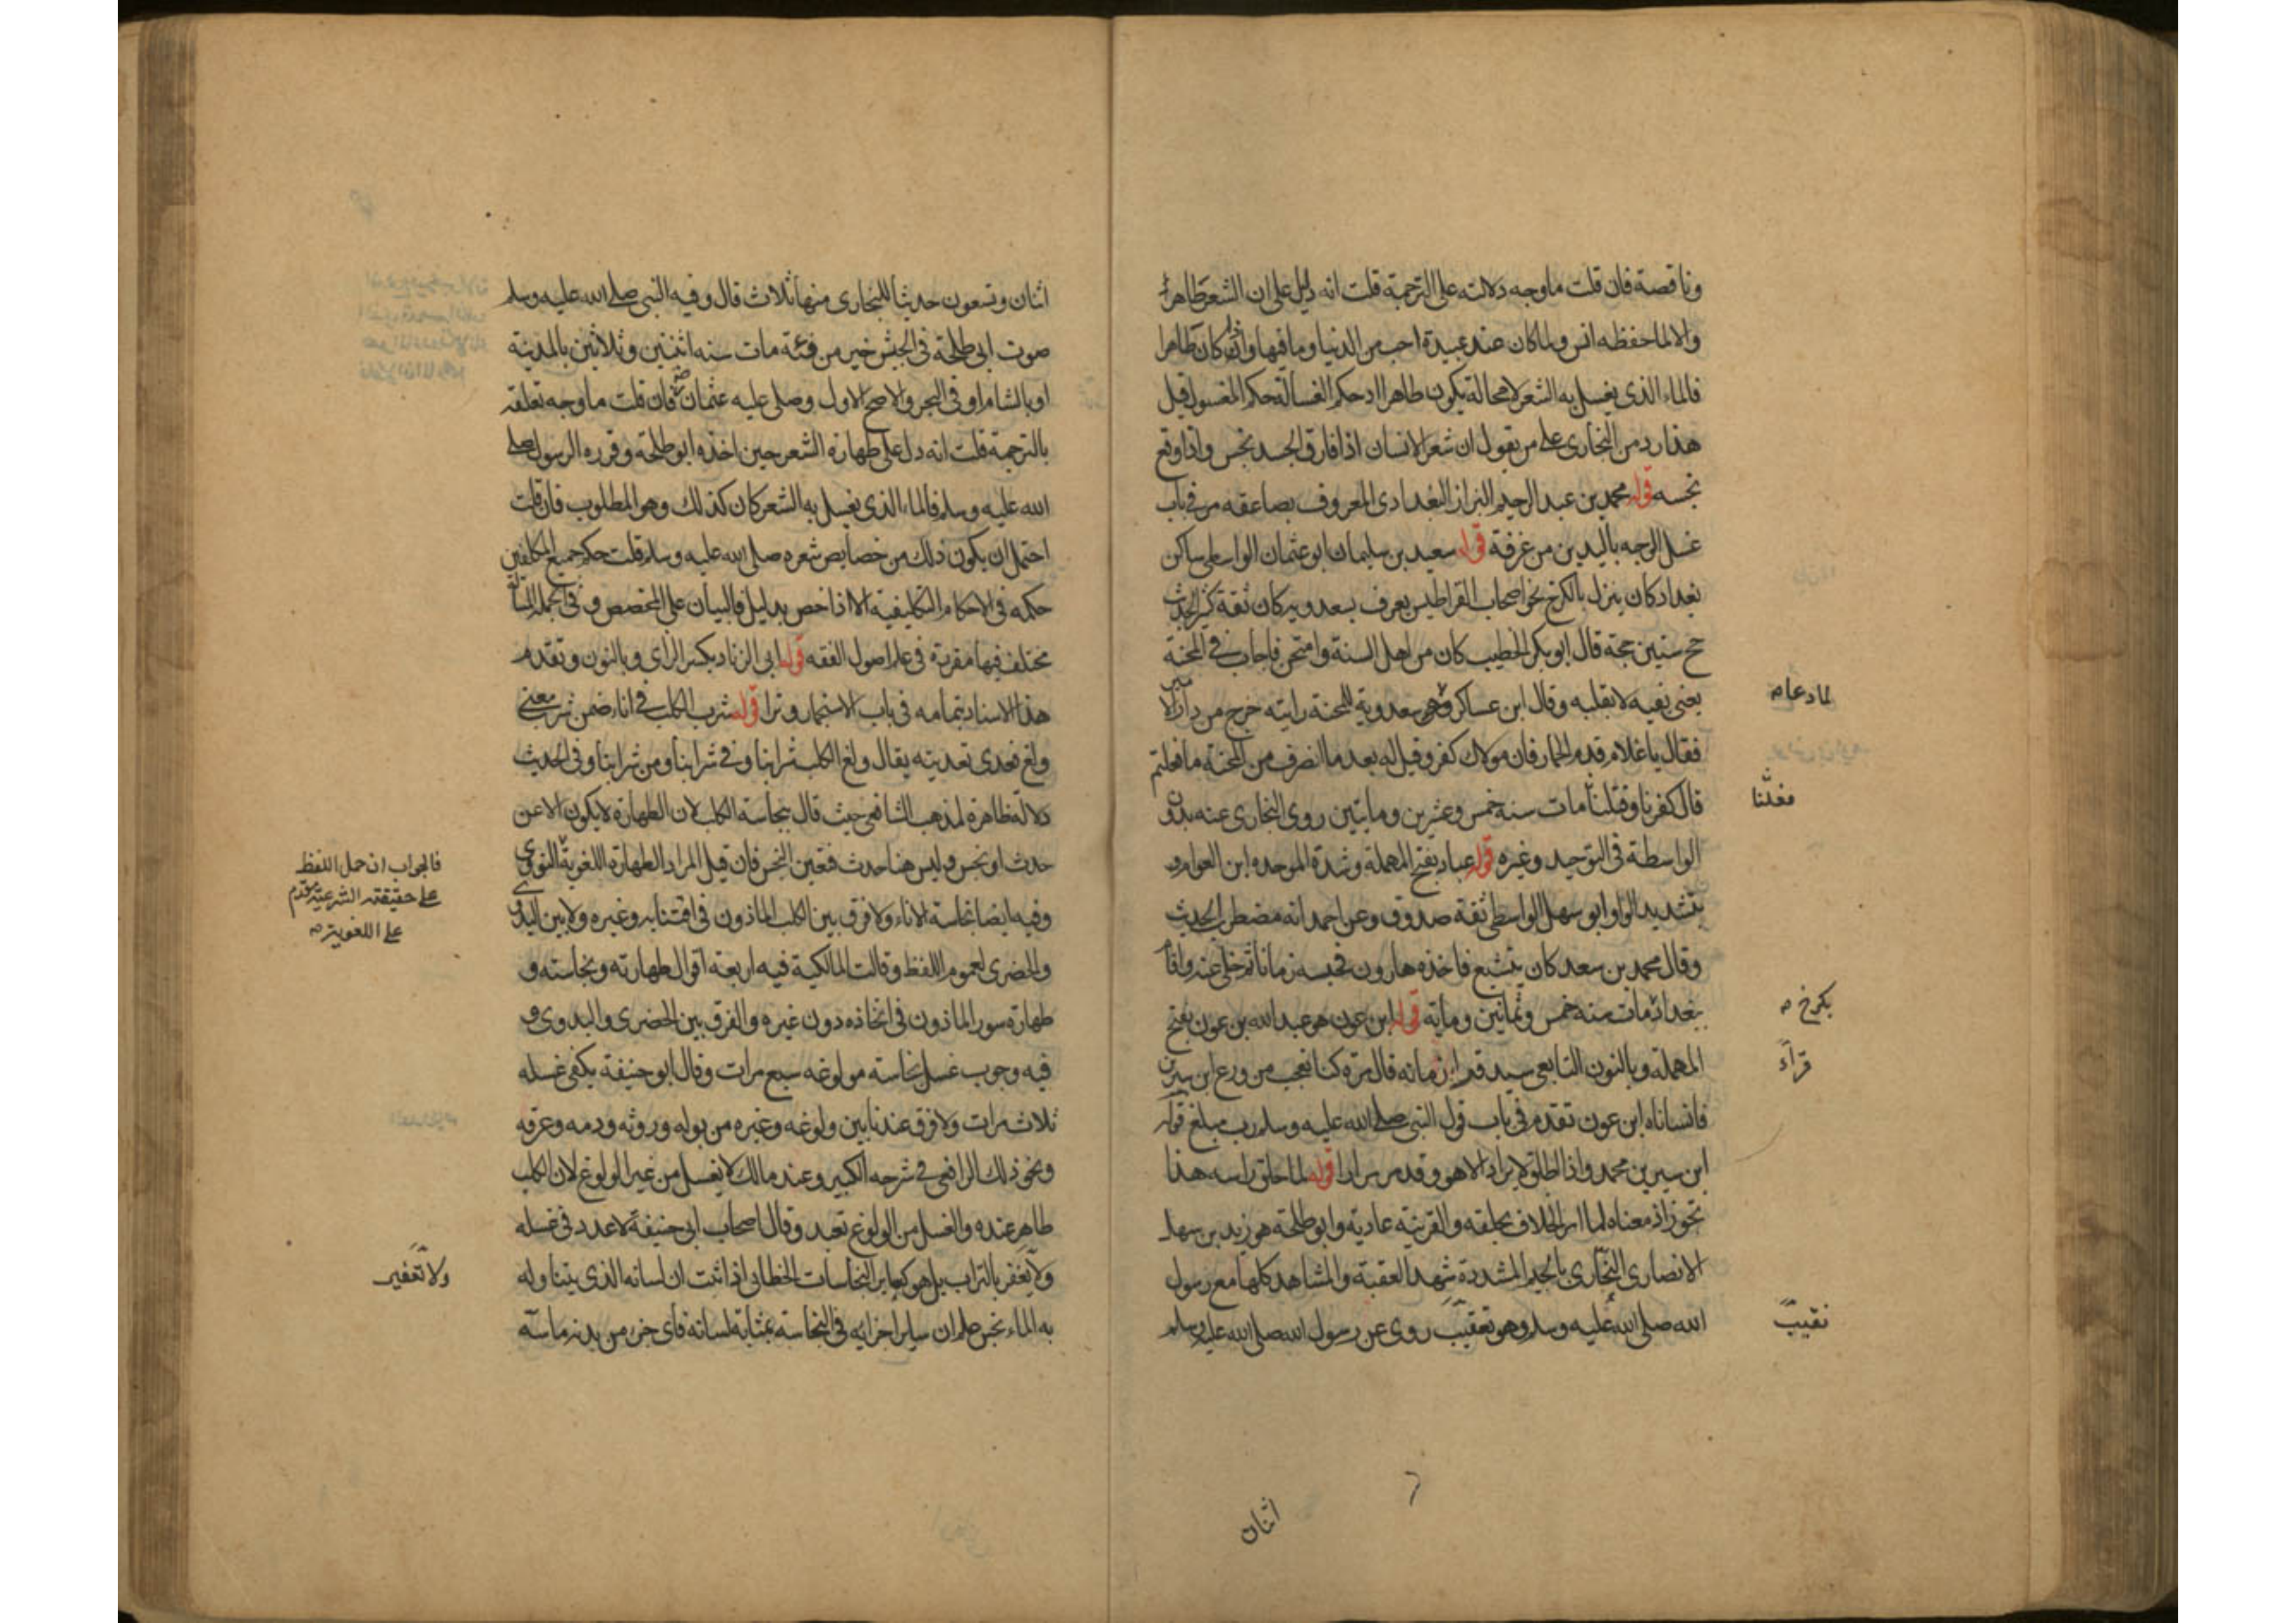 وناقصة فان قلت ما وجه دلالته على الترجمة قلت انه دليل على ان الشعر طاهر
والا لما حفظه انس ولما كان عند عبيدة احب من الدنيا وما فيها واذا كان طاهرا
فالماء الذي يغسل به الشعر لا محالة يكون طاهرا اذ حكم الغسالة حكم المغسول قيل
هذا رد من البخاري على من يقول ان شعر الانسان اذا فارق الجسد نجس واذا وقع
نجسه قوله محمد بن عبد الرحيم البزاز البغدادي المعروف بصاعقه مر في باب
غسل الوجه باليدين من غرفة قوله سعيد بن سليمان ابو عثمان الواسطي ساكن
بغداد كان ينزل بالكرخ نحو اصحاب القراطيس يعرف بسعدويه كان ثقة كثير الحديث
حج ستين حجة قال ابو بكر الخطيب كان من اهل السنة وامتحن فاجاب في المحنة
يعني بفيه لا بقلبه وقال ابن عساكر سعدوية للمحنة رايته خرج من دار الامير
لما دعا صح
فقال يا غلام قدم الحمار فان مولاك كفر وقيل له بعد ما انصرف من المحنة ما فعلتم
قال كفرنا وقتلنا مات سنه خمس وعشرين ومايتين روى البخاري عنه بدون
فعلنا
الواسطة في التوحيد وغيره قوله عباد بفتح المهملة وشدة الموحده ابن العوام
بتشديد الواو ابو سهل الواسطي ثقة صدوق وعن احمد انه مضطرب الحديث
وقال محمد بن سعد كان يتشيع فاخذه هارون فحبسه زمانا ثم خلى عنه واقام
ببغداد مات سنه خمس وثمانين وماية قوله ابن عون هو عبد الله بن عون بفتح
بكرخ صح
المهملة وبالنون التابعي سيد قراء زمانه قال مرة كنا نعجب من ورع ابن سيرين
قرآء
فانساناه ابن عون تقدم في باب قول النبي صلى الله عليه وسلم رب مبلغ قوله
ابن سيرين محمد واذا اطلق لا يراد الا هو وقد مر مرارا قوله لما حلق راسه هذا
تجوز اذ معناه لما امر الحلاق بحلقه والقرينة عادية وابو طلحة هو زيد بن سهل
الانصاري النجاري بالجيم المشددة شهد العقبة والمشاهد كلها مع رسول
الله صلى الله عليه وسلم وهو نقيب روى عن رسول الله صلى الله عليه وسلم
نقيب
اثنان
اثنان وتسعون حديثا للبخاري منها ثلاث قال وفيه النبي صلى الله عليه وسلم
صوت ابي طلحة في الجيش خير من فئة مات سنه اثنين وثلاثين بالمدينة
او بالشام او في البحر والاصح الاول وصلى عليه عثمان فان قلت ما وجه تعلقه
بالترجمة قلت انه دل على طهارة الشعر حين اخذه ابو طلحة وقرره الرسول صلى
الله عليه وسلم فالماء الذي يغسل به الشعر كان كذلك وهو المطلوب فان قلت
احتمل ان يكون ذلك من خصايص شعره صلى الله عليه وسلم قلت حكم جميع المكلفين
حكمه في الاحكام التكليفية الا اذا خص بدليل فالبيان على المخصص وفي الجملة المسألة
مختلف فيها مقررة في علم اصول الفقه قوله ابي الزناد بكسر الزاي وبالنون وتقدم
هذا الاسناد بتمامه في باب الاستجمار وترا قوله شرب الكلب في اناء ضمن شرب معنى
ولغ فعدي تعديته يقال ولغ الكلب شرابنا وفي شرابنا ومن شرابنا وفي الحديث
دلالة ظاهرة لمذهب الشافعي حيث قال بنجاسة الكلب لان الطهارة لا يكون الا عن
حدث او نجس وليس هنا حدث فتعين النجس فان قيل المراد الطهارة اللغوية النووي
فالجواب ان حمل اللفظ
على حقيقته الشرعية مقدم
على اللغوية صح
وفيه ايضا نجاسة الاناء ولا فرق بين الكلب الماذون في اقتنايه وغيره ولا بين البدوي
والحضري لعموم اللفظ وقالت المالكية فيه اربعة اقوال طهارته ونجاسته و
طهارة سور الماذون في اتخاذه دون غيره والفرق بين الحضري والبدوي و
فيه وجوب غسل نجاسة مولوغه سبع مرات وقال ابو حنيفة يكفي غسله
ثلاث مرات ولا فرق عندنا بين ولوغه وغيره من بوله وروثه ودمه وعرقه
ونحو ذلك الرافعي في شرحه الكبير وعند مالك لا يغسل من غير الولوغ لان الكلب
طاهر عنده والغسل من الولوغ تعبد وقال اصحاب ابي حنيفة لا عدد في غسله
ولا يعفر بالتراب بل هو كساير النجاسات الخطابي اذا ثبت ان لسانه الذي يتناول
ولا تعفير
به الماء نجس علم ان ساير اجزايه في النجاسة بمثابة لسانه فاي جزء من بدنه ماسه